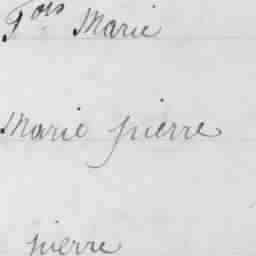 Fois Marie
Marie pierre
pierre